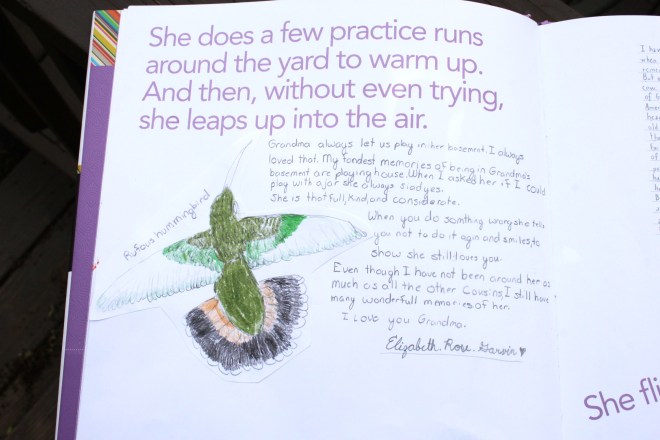 She does a few practice runs
around the yard to warm up.
And then, without even trying,
she leaps up into the air.
Grandma always let us play in her basement. I always
loved that. My fondest memories of being in Grandma's
basement are playing house. When I asked her if I could
play with a jar she always siad yes.
She is thatfull, Kind, and considerate.
Rufous hummingbird
When you do somthing wrong she tells
you not to do it agin and smiles, to
show she still loves you.
Even though I have not been around her as
much as all the other Cousins, I still have
many wonderfull memories of her.
I Love you Grandma.
Elizabeth. Rose. Garvin ♥
She fli